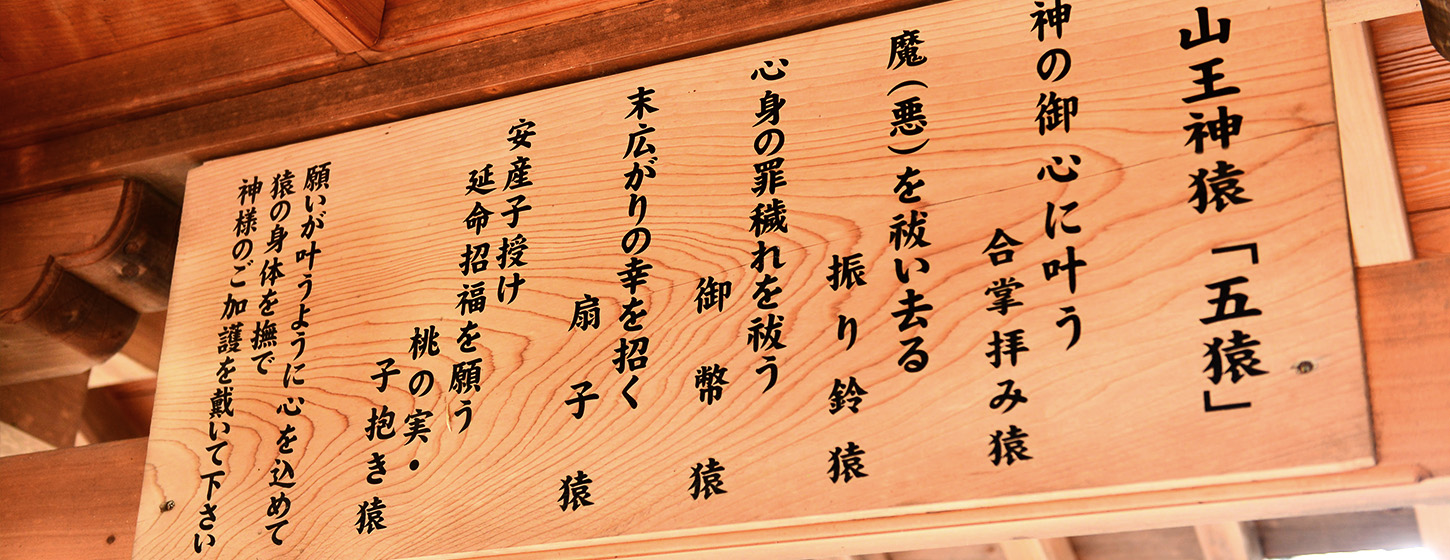 山王神猿「五猿」
神の御心に叶う
合掌拝み猿
魔(悪)を祓い去る
振り鈴猿
心身の罪穢れを祓う
御幣猿
末広がりの幸を招く
扇子猿
安産子授け
延命招福を願う
桃の実・
子抱き猿
願いが叶うように心を込めて
猿の身体を撫で
神様のご加護を戴いて下さい